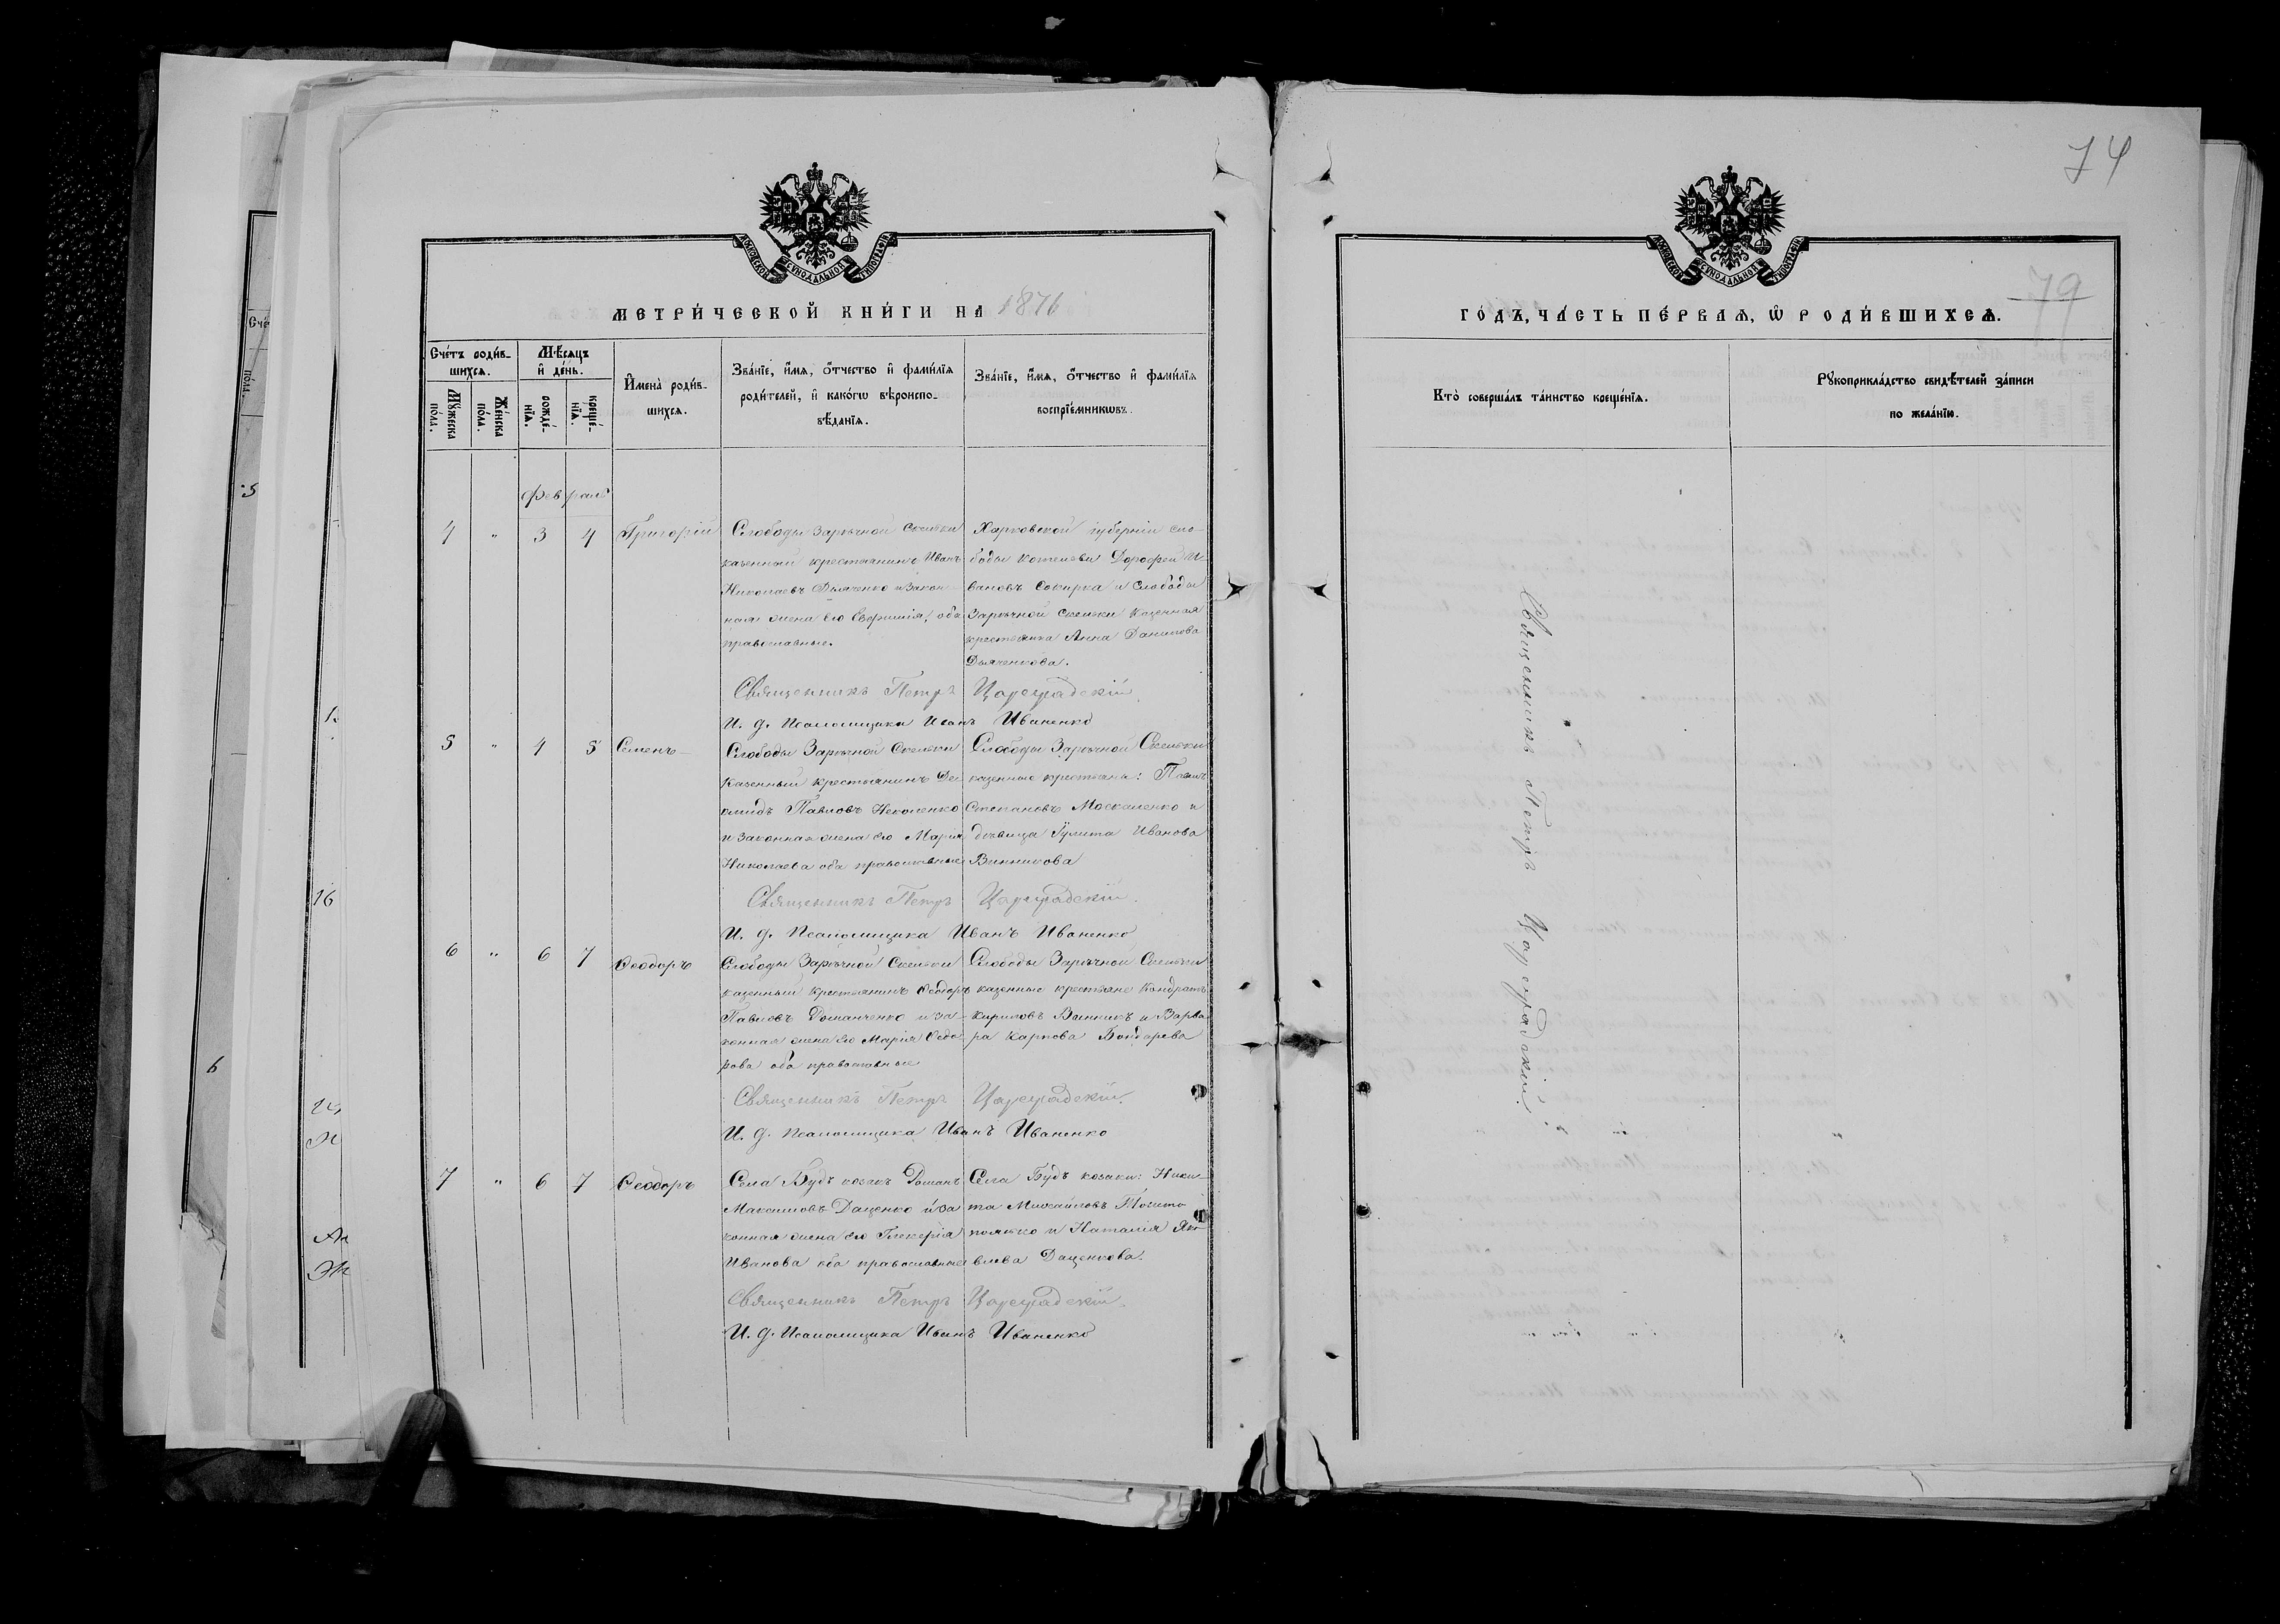 74
79
МОСКОВСКОЙ СУНОДАЛЬНОЙ ТИПОГРАФІИ
МЕТРИ́ЧЕСКОЙ КНИ́ГИ НА 1876
Сче́тъ роди́в-
шихсѧ.
Мѣ́сяцъ
и҆ де́нь.
Мꙋ́жеска
по́ла.
Же́нска
по́ла.
рожде́-
нїѧ.
креще́-
нїѧ.
И҆мена̀ роди́в-
шихсѧ.
Зва́нїе, и҆́мѧ, ѻ҆́тчество и҆ фами́лїѧ
роди́телей, и҆ како́гѡ вѣроиспо-
вѣ́данїѧ.
Зва́нїе, и҆́мѧ, ѻ҆́тчество и҆ фами́лїѧ
воспрїе́мникѡвъ.
Февраль
4 " 3 4 Григорій
Слободы Зарѣчной Скельки
казенный крестьянинъ Иванъ
Николаевъ Дьяченко и закон-
ная жена его Евфимія, оба
православные.
Харковской губерніи сло-
боды Котельвы Дорофей И-
вановъ Сокирка и Слободы
Зарѣчной Скельки казенная
крестьянка Анна Данилова
Дьяченкова.
Священникъ Петръ Цареградскій.
И. д. Псаломщика Иванъ Иваненко
5 " 4 5 Семенъ
Слободы Зарѣчной Скельки
Казенный крестьянинъ
Павловъ
и законная жена его Марія
Николаева оба православные
Слободы Зарѣчной Скельки
казенные крестьяне: Павелъ
Степановъ Москаленко и
дѣвица Іулита Иванова
Винникова
Священникъ Петръ Цареградскій.
И. д. Псаломщика Иванъ Иваненко
6 " 6 7 Ѳеодоръ
Слободы Зарѣчной Скельки
казенный крестьянинъ Ѳеодоръ
Павловъ Доманченко и за-
конная жена его Марія Ѳедо-
рова оба православные
Слободы Зарѣчной Скельки
казенные крестьяне Кондратъ
Кириловъ Винникъ и Варва-
ра Карпова Бондарева
Священникъ Петръ Цареградскій.
И. д. Псаломщика Иванъ Иваненко
7 " 6 7 Ѳеодоръ
Села Будъ козакъ Романъ
Максимовъ Даценко и за-
конная жена его Гликерія
Иванова оба православные
Села Будъ козаки: Ники-
та Михайловъ
и Наталія Яко-
влева Даценкова.
Священникъ Петръ Цареградскій.
И. д. Псаломщика Иванъ Иваненко
МОСКОВСКОЙ СУНОДАЛЬНОЙ ТИПОГРАФІИ
ГО́ДЪ, ЧА́СТЬ ПЕ́РВАѦ, Ѽ РОДИ́ВШИХСѦ.
Кто̀ соверша́лъ та́инство креще́нїѧ.
Рꙋкоприкла́дство свидѣ́телей за́писи
по жела́нїю.
Священникъ Петръ Цареградскій.